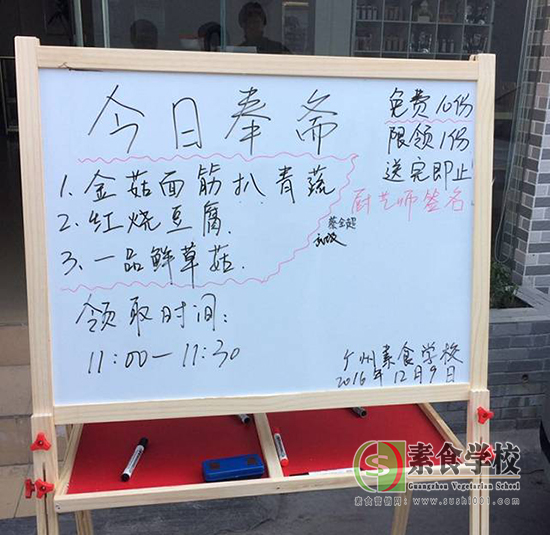 今日奉斋
免费10份
限领1份
送完即止!
厨艺师签名:
蔡金超
1. 金菇面筋扒青蔬
2. 红烧豆腐.
3. 一品鲜草菇.
领取时间:
11:00—11:30
广州素食学校
2016年12月9日
素食学校
Guangzhou Vegetarian School
素食营销网: www.sushi001.com